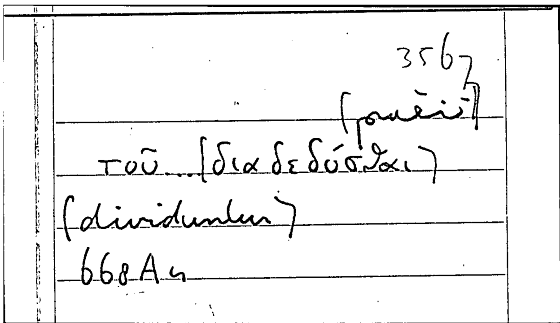 3567
τοῦ....[διαδεδύσθαι]
(dividuntur)
668A4